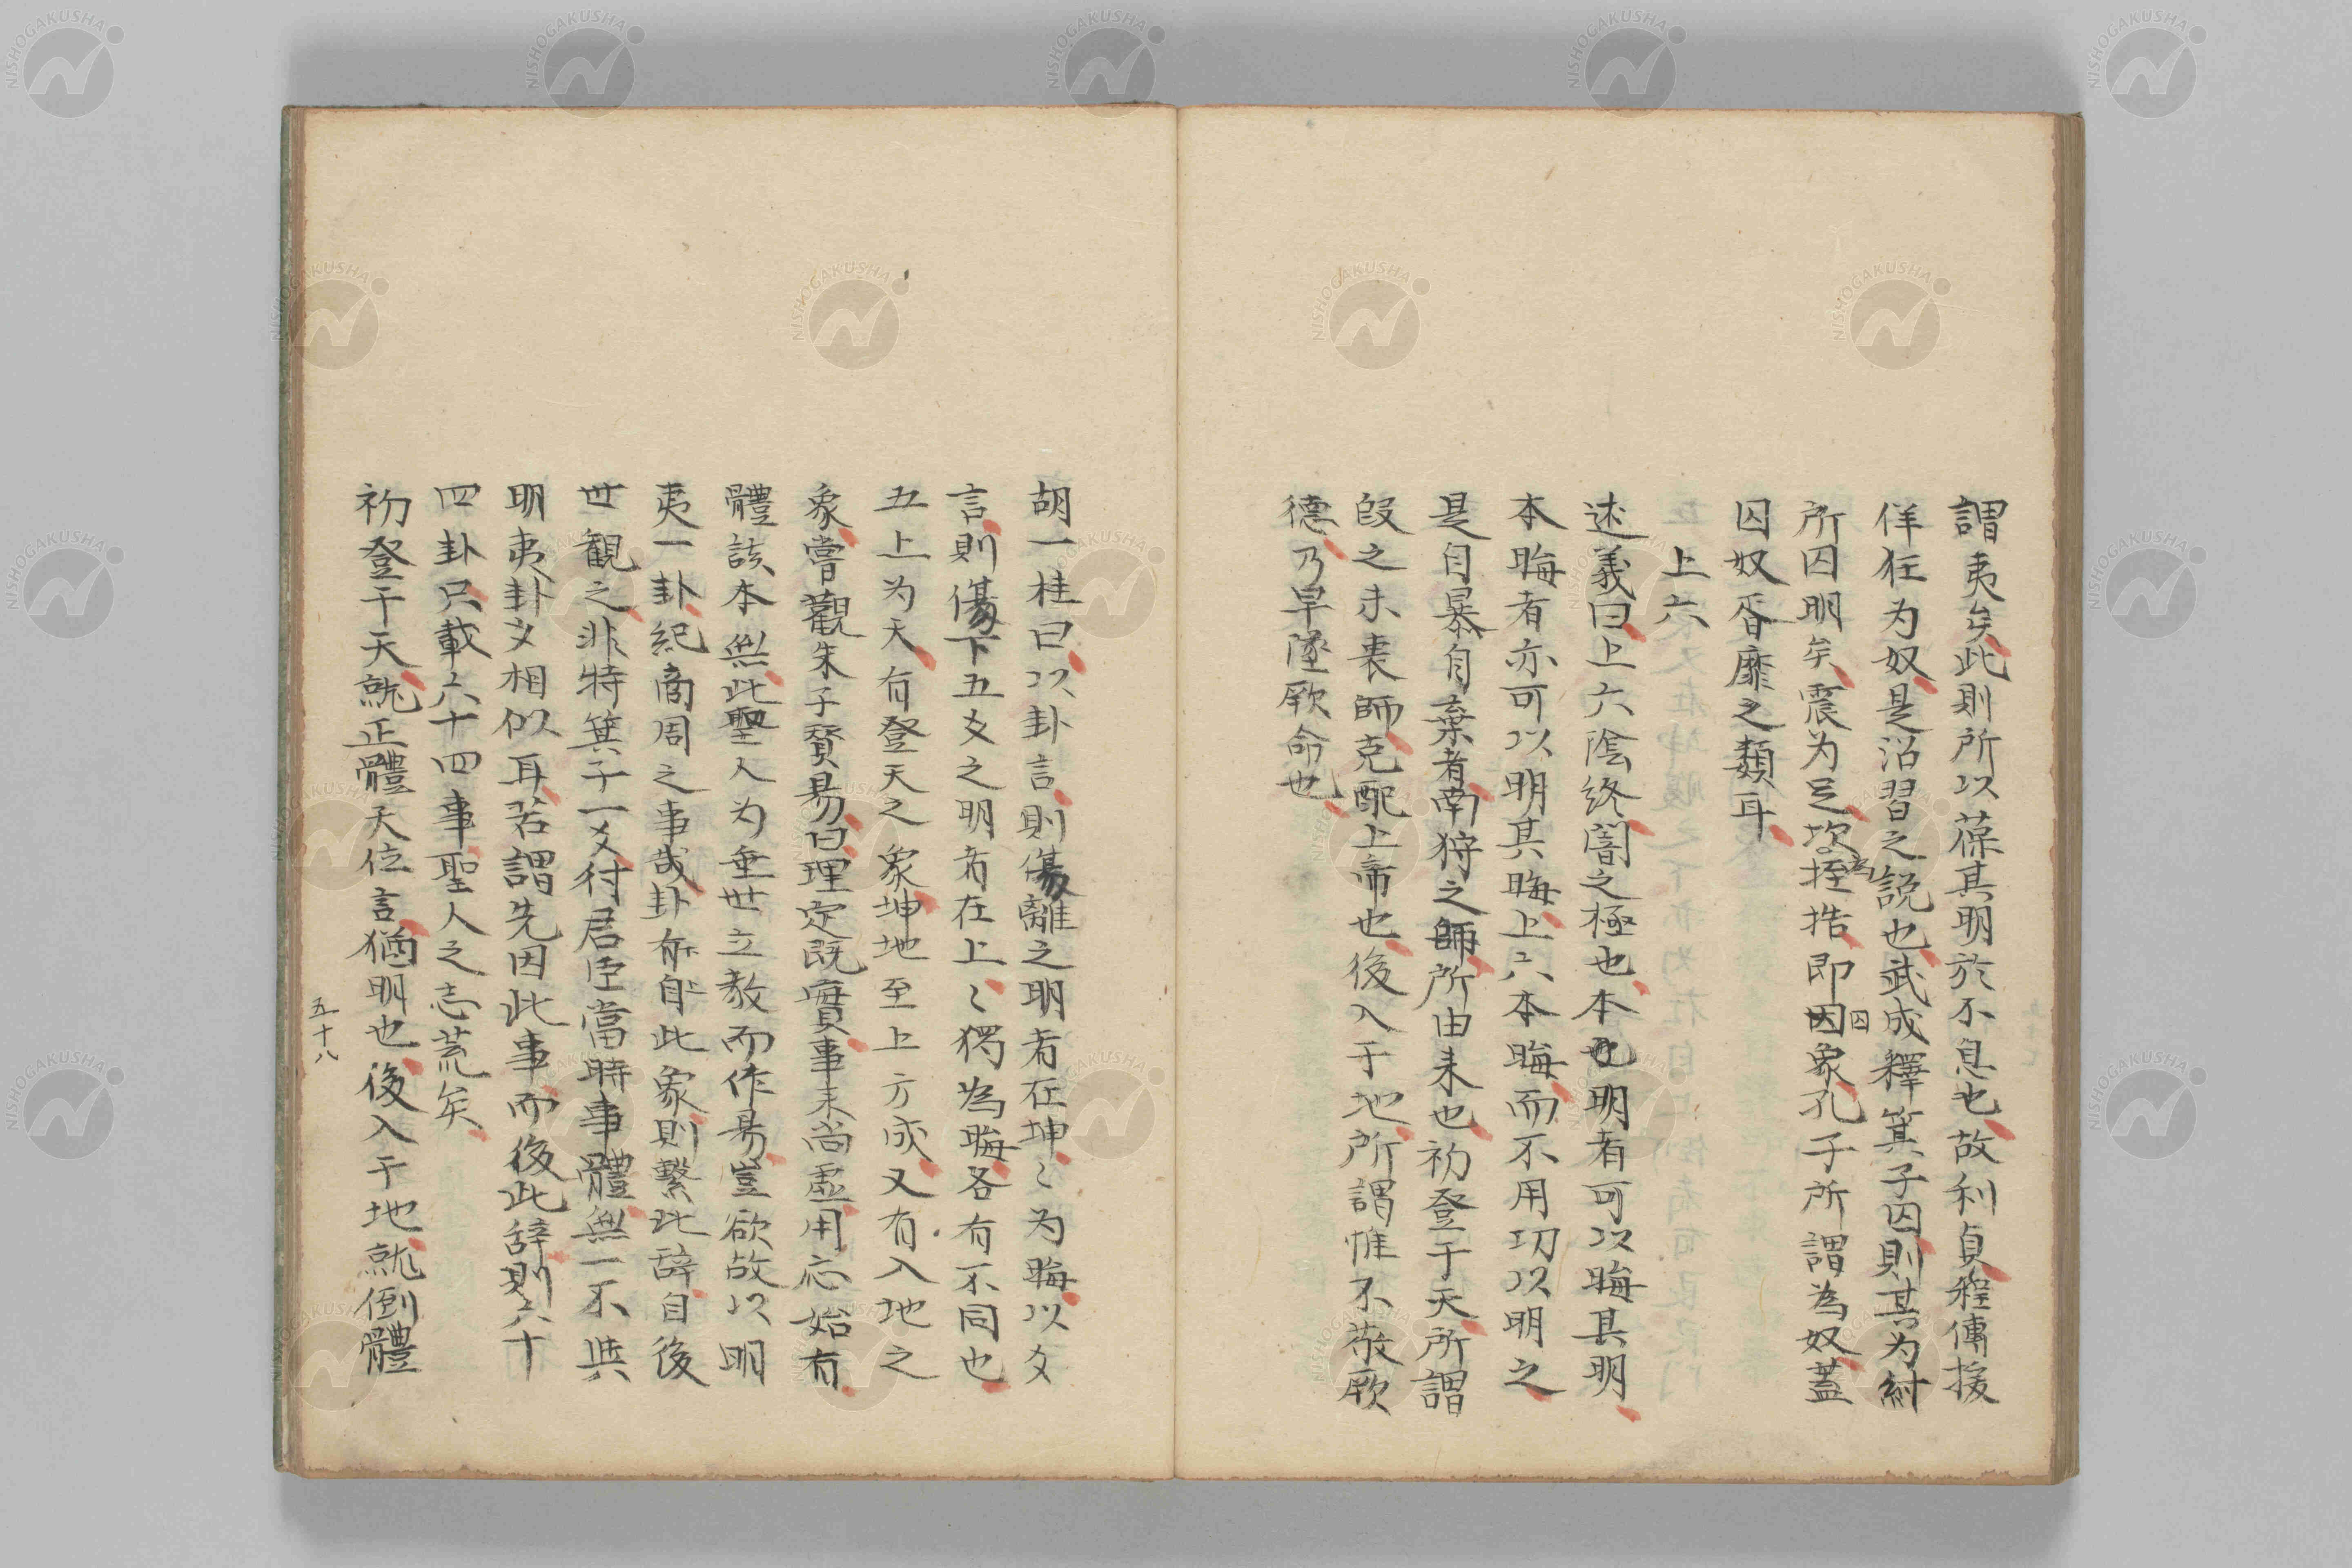 謂夷矣此則所以葆其明於不息也故利貞程傳援
佯狂为奴是沿習之説也武成釋箕子囚則其为紂
所囚明矣震为足坎為桎梏即囚象孔子所謂為奴蓋
囚奴胥靡之類耳
上六
述義曰上六陰終闇之極也本也明者可以晦其明
本晦者亦可以明其晦上六本晦而不用功以明之
是自暴自棄者南狩之師所由来也初登于天所謂
殷之未喪師克配上帝也後入于地所謂惟不敬厥
德乃早墜厥命也
胡一桂曰以卦言則傷離之明者在坤〻为晦以爻
言則傷下五爻之明者在上〻獨為晦各有不同也
五上为天有登天之象坤地至上方成又有入地之
象嘗觀朱子賛易曰理定既實事来尚虚用応始有
體該本無此聖人为垂世立教而作易豈欲故以明
夷一卦紀商周之事哉卦有自此象則繫此辞自後
世観之非特箕子一爻付君臣當時事體無一不與
明夷卦爻相似耳若謂先因此事而後此辞則六十
四卦只載六十四事聖人之志荒矣
初登于天就正體天位言猶明也後入于地就倒體
五十八
NISHOGAKUSHA